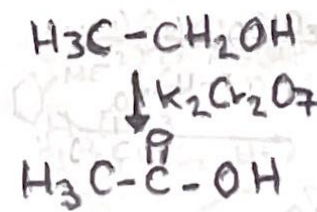 H3C-CH2OH
K2Cr2O7
O
H3C-C-OH